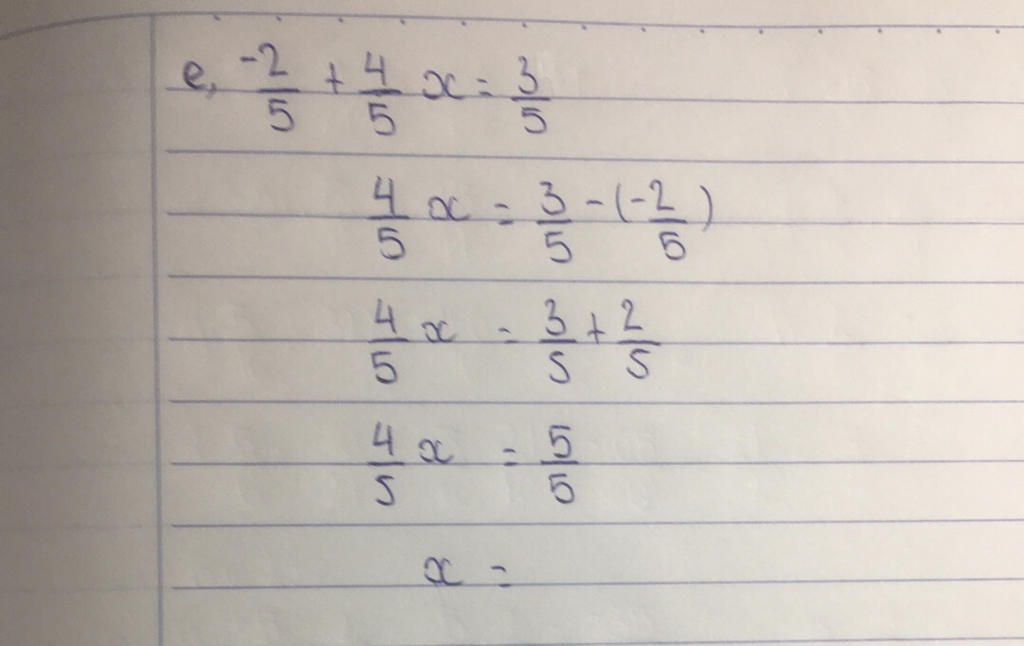 e, -2/5 + 4/5 x = 3/5
4/5 x = 3/5 - (-2/5)
4/5 x = 3/5 + 2/5
4/5 x = 5/5
x =